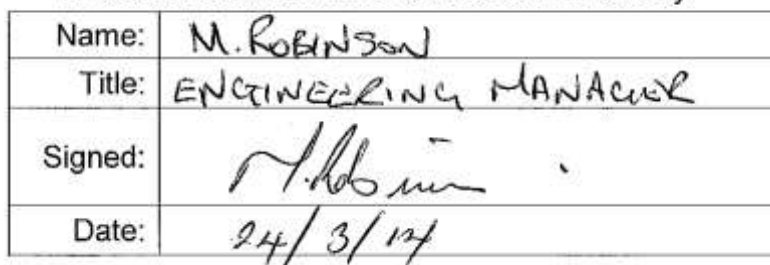 Name: M. ROBINSON
Title: ENGINEERING MANAGER
Signed: M. Robinson
Date: 24/3/14